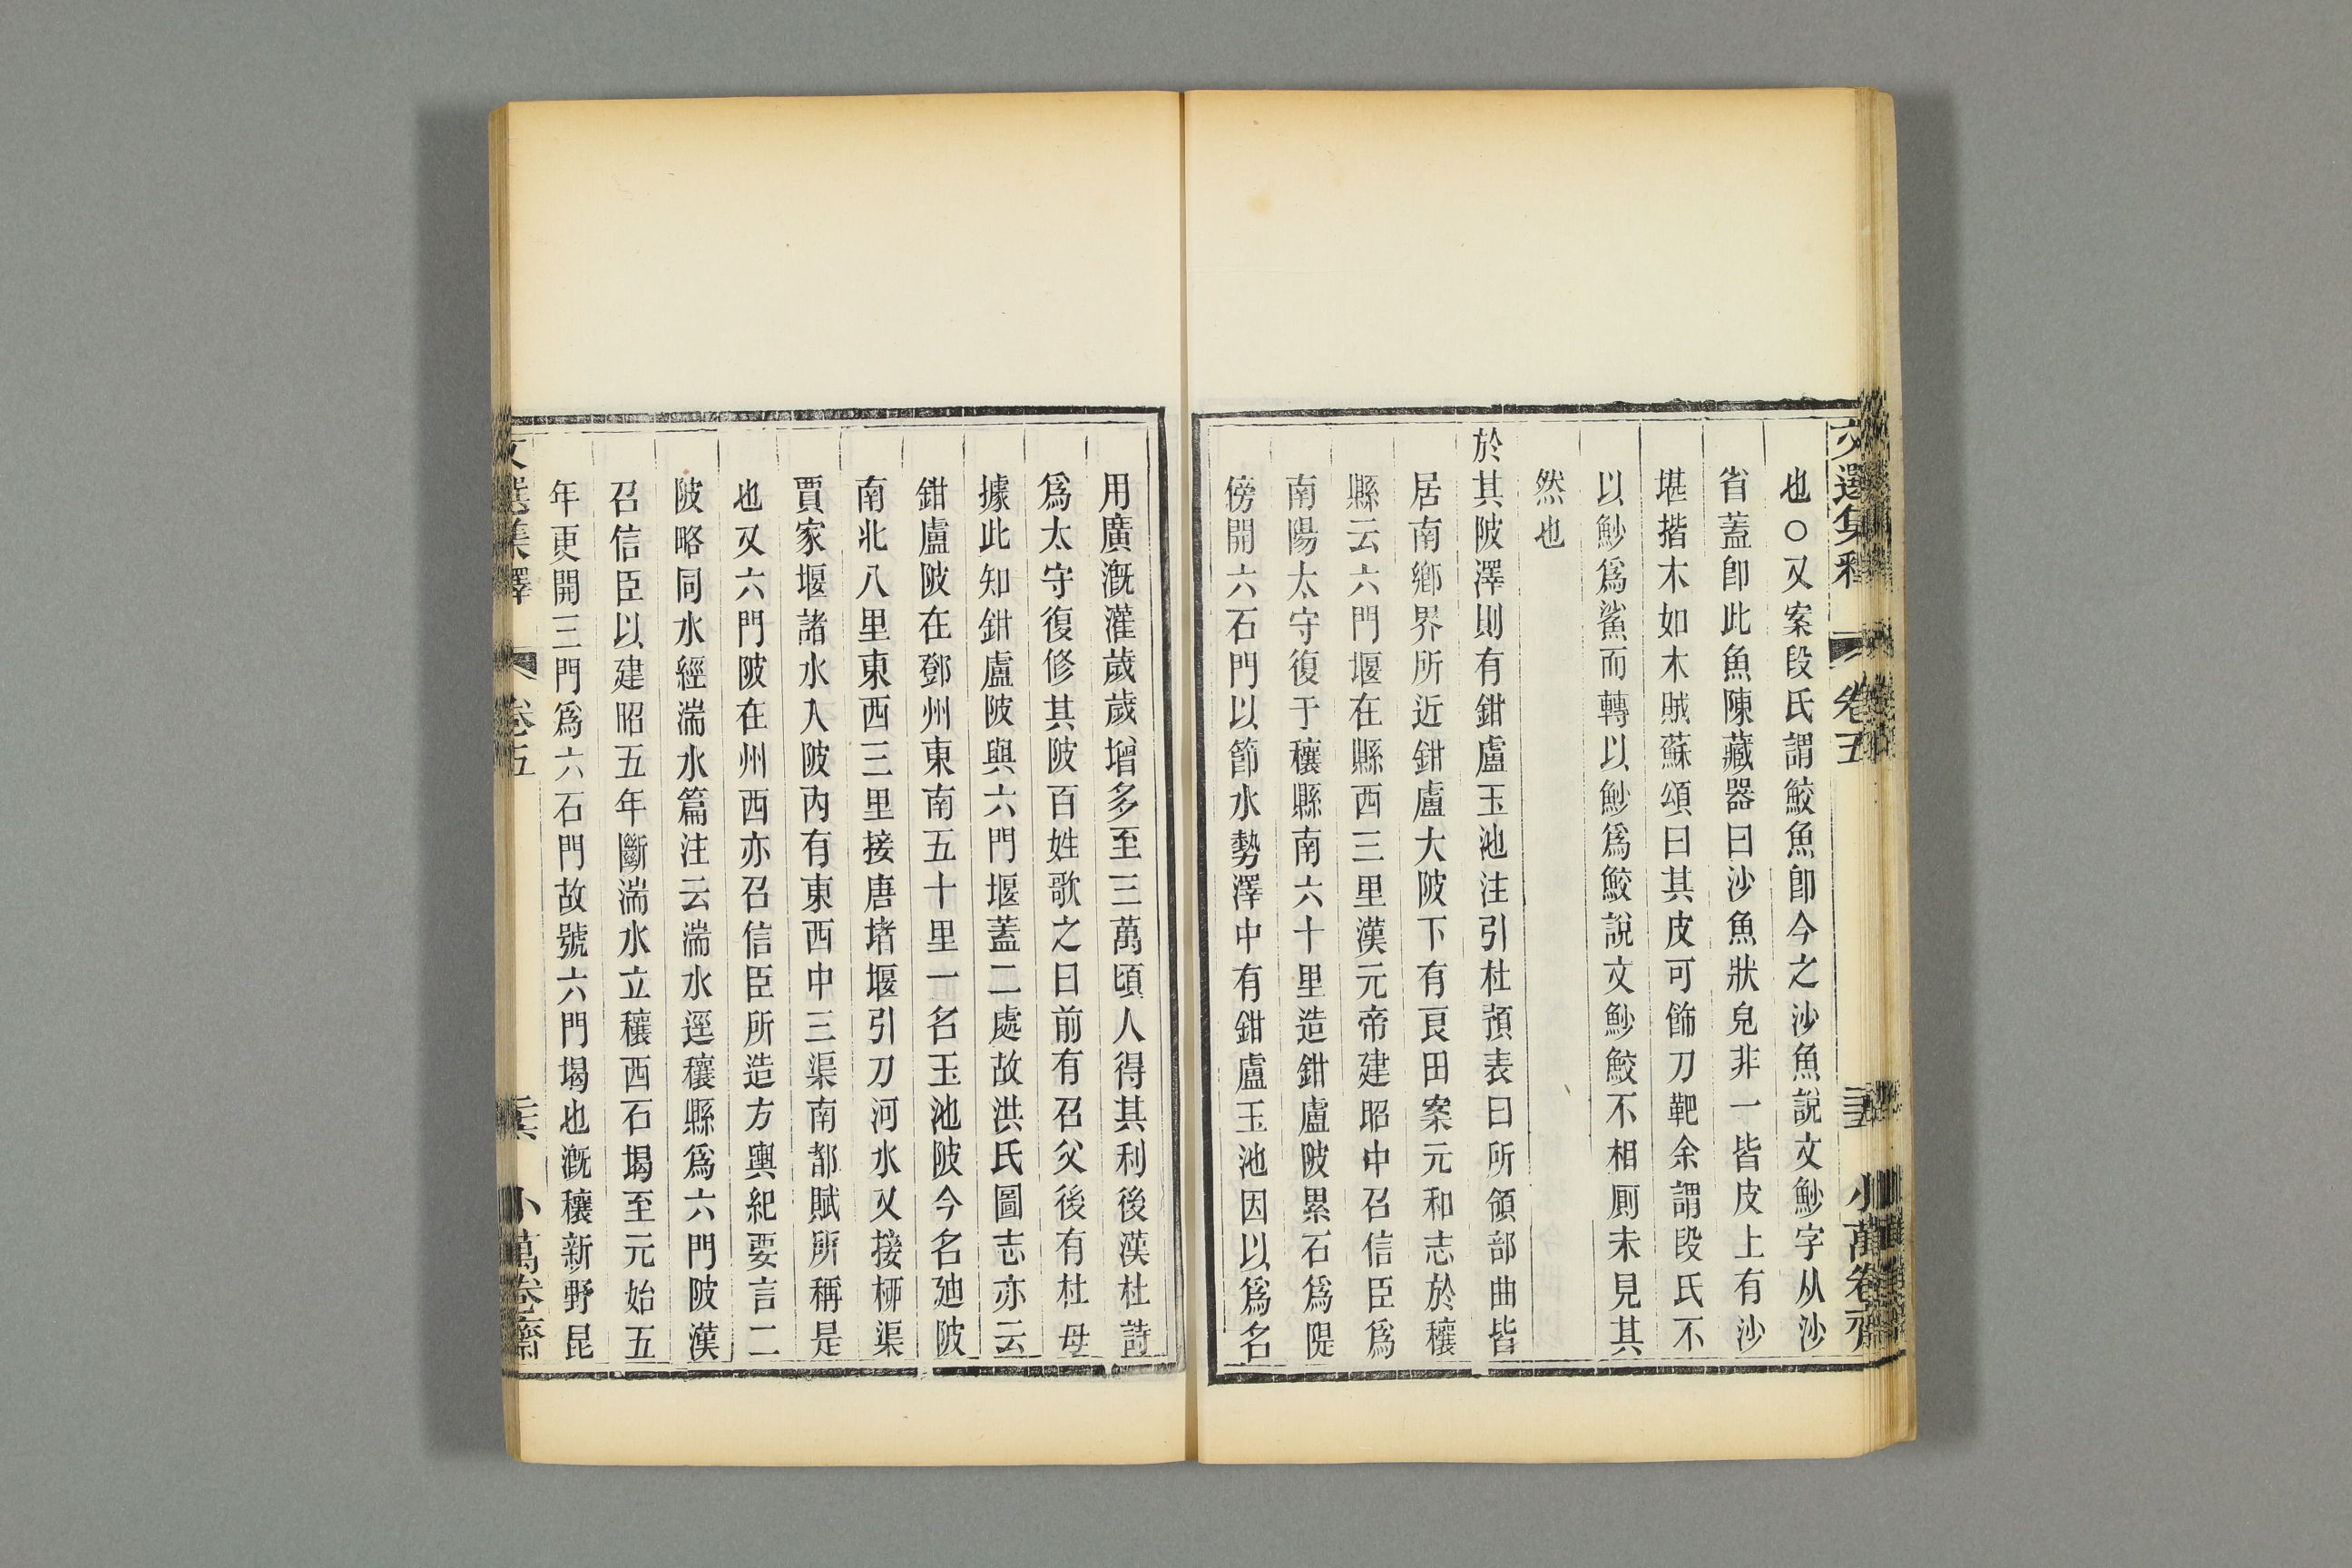 文選集釋 卷五 三五 小萬卷齋
也○又案段氏謂鮫魚卽今之沙魚說文魦字从沙
省蓋卽此魚陳藏器曰沙魚狀皃非一皆皮上有沙
堪揩木如木賊蘇頌曰其皮可飾刀靶余謂段氏不
以魦爲鯊而轉以魦爲鮫說文魦鮫不相厠未見其
然也
於其陂澤則有鉗盧玉池注引杜預表曰所領部曲皆
居南鄉界所近鉗盧大陂下有良田案元和志於穰
縣云六門堰在縣西三里漢元帝建昭中召信臣爲
南陽太守復于穰縣南六十里造鉗盧陂累石爲隄
傍開六石門以節水勢澤中有鉗盧玉池因以爲名
用廣漑灌歲歲增多至三萬頃人得其利後漢杜詩
爲太守復修其陂百姓歌之曰前有召父後有杜母
據此知鉗盧陂與六門堰蓋二處故洪氏圖志亦云
鉗盧陂在鄧州東南五十里一名玉池陂今名廸陂
南北八里東西三里接唐堵堰引刀河水又接栁渠
賈家堰諸水入陂內有東西中三渠南都賦所稱是
也又六門陂在州西亦召信臣所造方輿紀要言二
陂略同水經湍水篇注云湍水逕穰縣爲六門陂漢
召信臣以建昭五年斷湍水立穰西石堨至元始五
年更開三門爲六石門故號六門堨也漑穰新野昆
文選集釋 卷五 三六 小萬卷齋